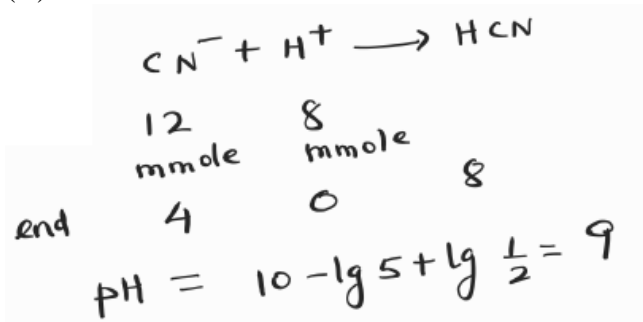 CN⁻ + H⁺ ⟶ HCN
12 8
mmole mmole
end 4 0 8
pH = 10 - lg 5 + lg 1/2 = 9